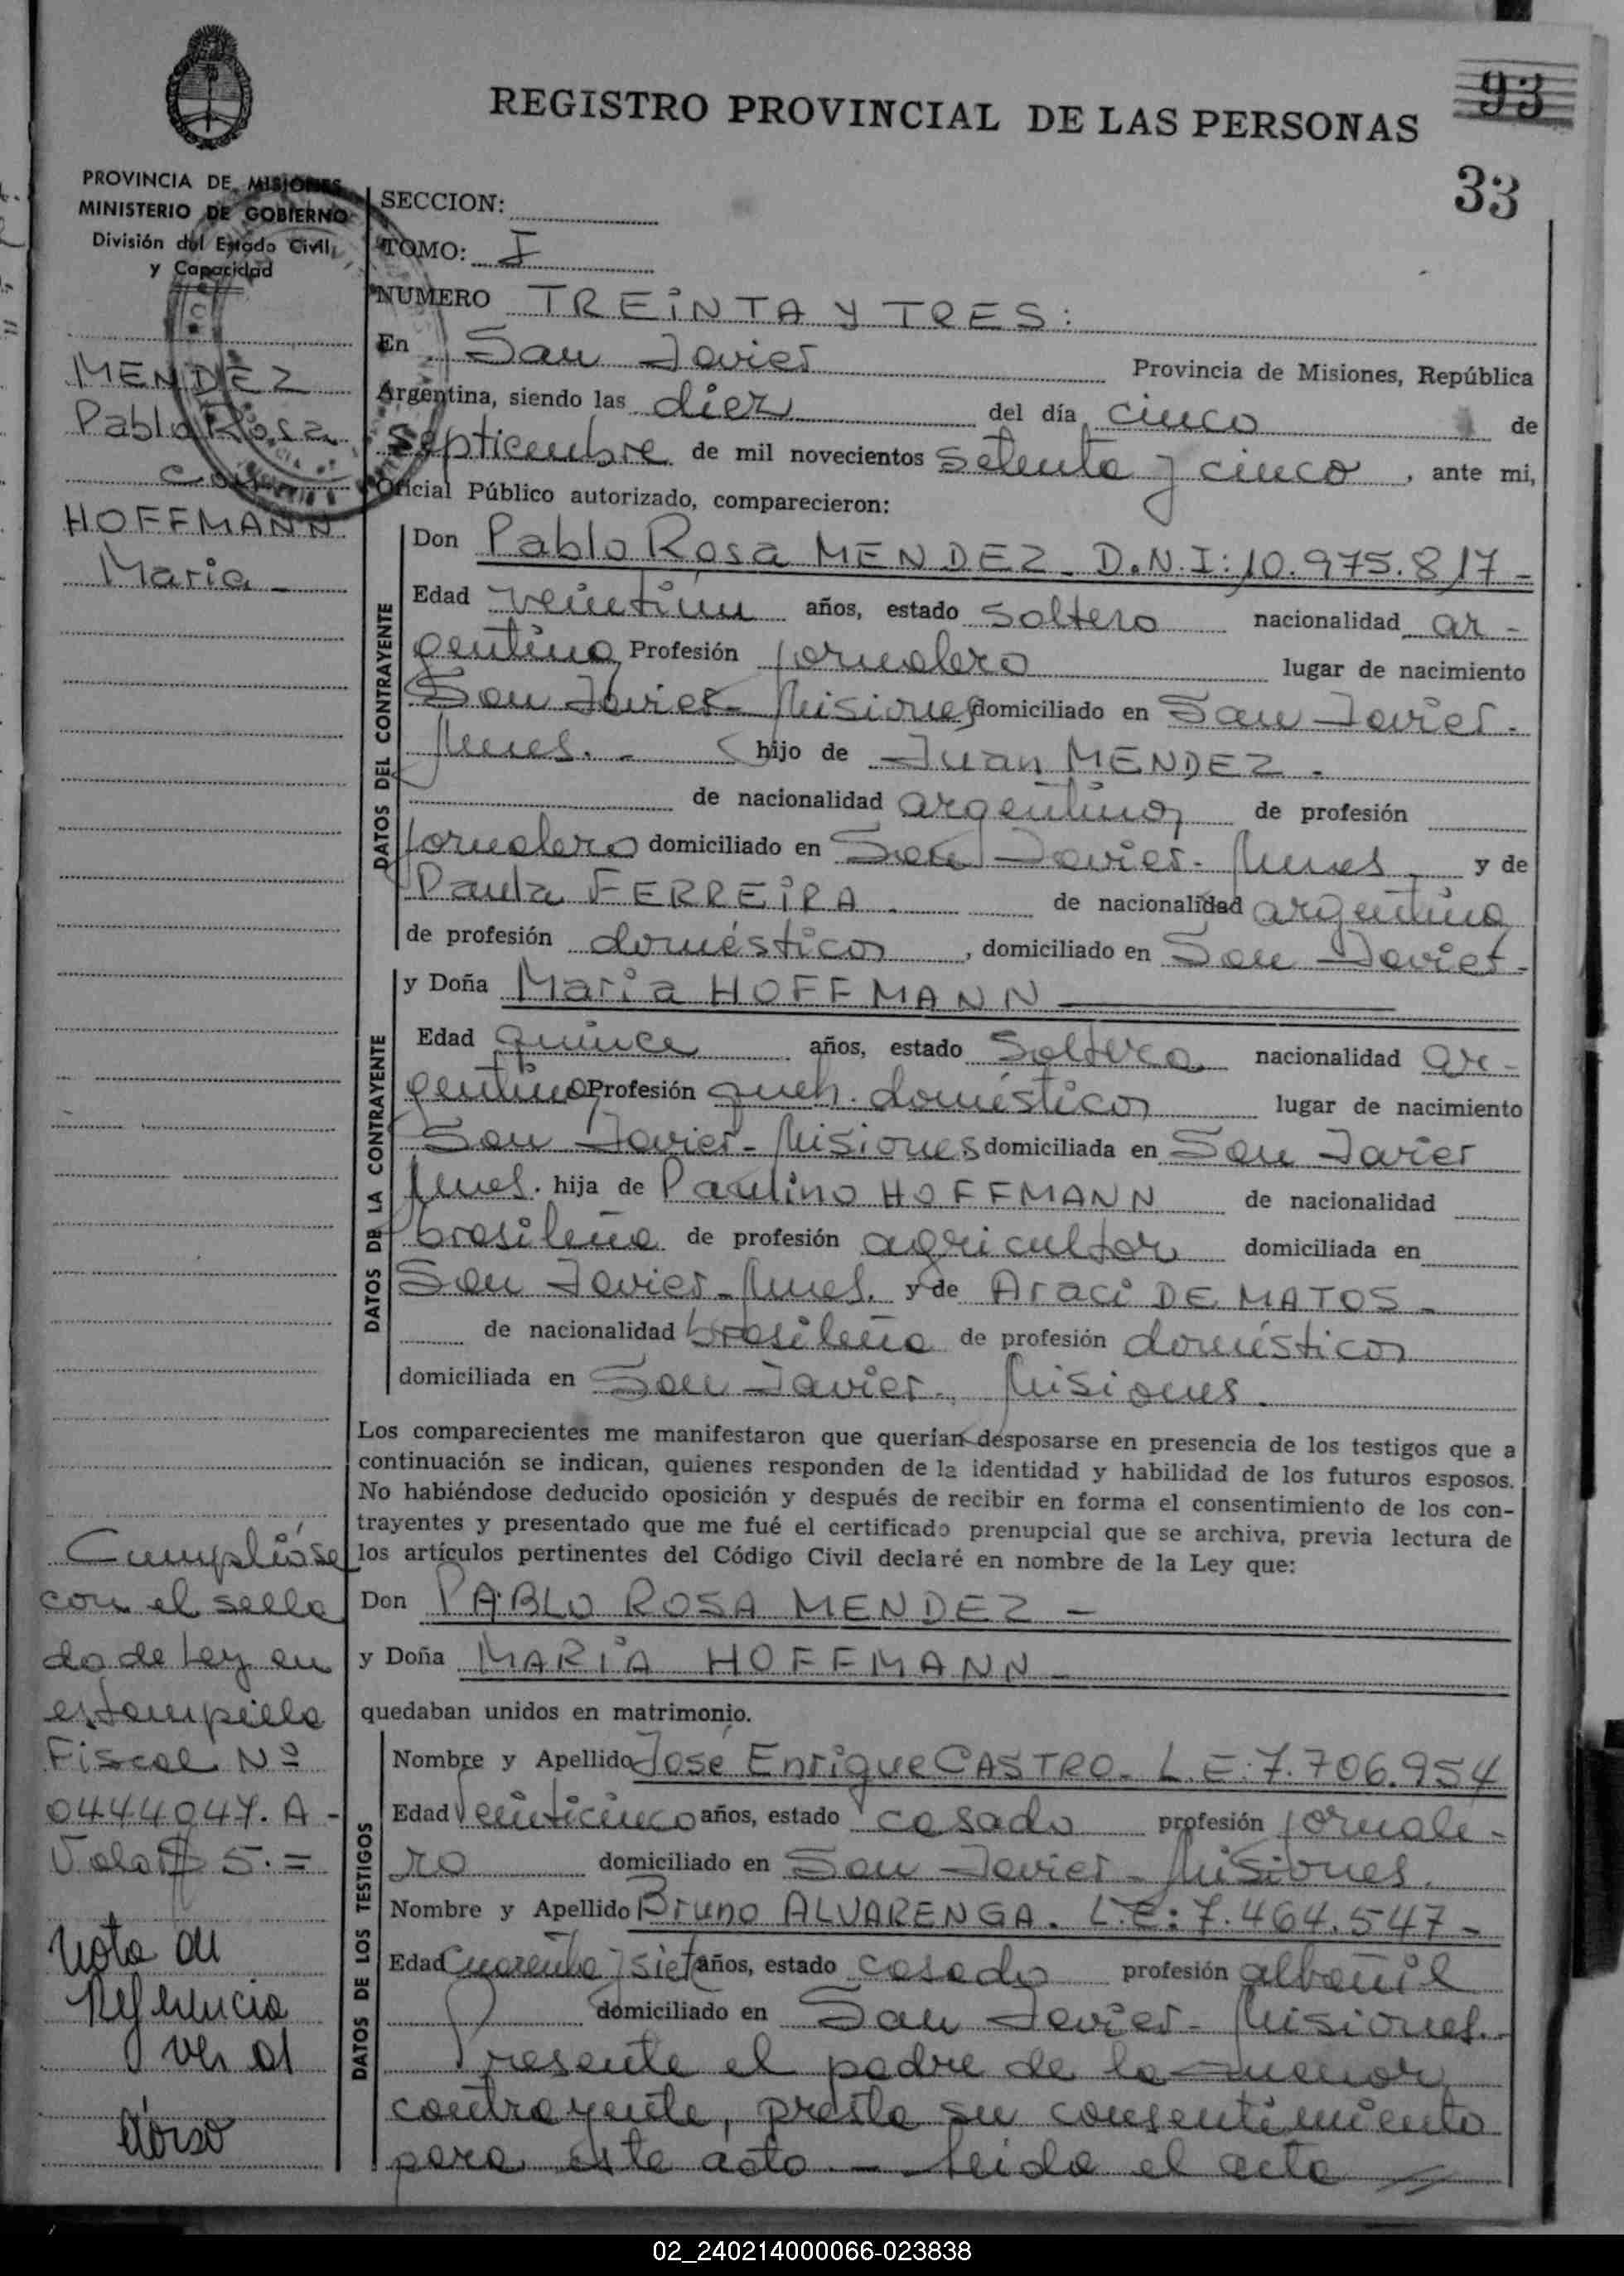 REGISTRO PROVINCIAL DE LAS PERSONAS
93
33
PROVINCIA DE MISIONES
MINISTERIO DE GOBIERNO
División del Estado Civil
y Capacidad
SECCION:
TOMO: I
NUMERO TREINTA Y TRES:
En San Javier Provincia de Misiones, República
Argentina, siendo las diez del día cinco de
septiembre de mil novecientos setenta y cinco, ante mi,
Oficial Público autorizado, comparecieron:
MENDEZ
Pablo Rosa
con
HOFFMANN
Maria
DATOS DEL CONTRAYENTE
Don Pablo Rosa MENDEZ D.N.I: 10.975.817-
Edad veintiun años, estado soltero nacionalidad ar-
gentina Profesión jornalero lugar de nacimiento
San Javier- Misiones domiciliado en San Javier-
Mnes.- hijo de Juan MENDEZ-
de nacionalidad argentina de profesión
jornalero domiciliado en San Javier- Mnes. y de
Paula FERREIRA de nacionalidad argentina
de profesión domésticos, domiciliado en San Javier-
DATOS DE LA CONTRAYENTE
y Doña Maria HOFFMANN
Edad quince años, estado soltera nacionalidad ar-
gentina Profesión queh. domésticos lugar de nacimiento
San Javier- Misiones domiciliada en San Javier
Mnes. hija de Paulino HOFFMANN de nacionalidad
brasileña de profesión agricultor domiciliada en
San Javier- Mnes. y de Araci DE MATOS-
de nacionalidad brasileña de profesión domésticos
domiciliada en San Javier- Misiones.
Los comparecientes me manifestaron que querían desposarse en presencia de los testigos que a
continuación se indican, quienes responden de la identidad y habilidad de los futuros esposos.
No habiéndose deducido oposición y después de recibir en forma el consentimiento de los con-
trayentes y presentado que me fué el certificado prenupcial que se archiva, previa lectura de
los artículos pertinentes del Código Civil declaré en nombre de la Ley que:
Don PABLO ROSA MENDEZ-
y Doña MARIA HOFFMANN-
quedaban unidos en matrimonio.
DATOS DE LOS TESTIGOS
Nombre y Apellido José Enrique CASTRO- L.E: 7.706.954
Edad Veinticinco años, estado casado profesión jornale-
ro domiciliado en San Javier- Misiones.
Nombre y Apellido Bruno ALVARENGA. L.E: 7.464.547-
Edad Cuarenta y siete años, estado casado profesión albañil
domiciliado en San Javier- Misiones.-
Presente el padre de la menor
contrayente, presta su consentimiento
para este acto.- Leida el acta
Cumplióse
con el sella
do de Ley en
estampilla
Fiscal Nº
0444047.A-
Valor $ 5.=
Nota de
Referencia
ver al
dorso
02_240214000066-023838